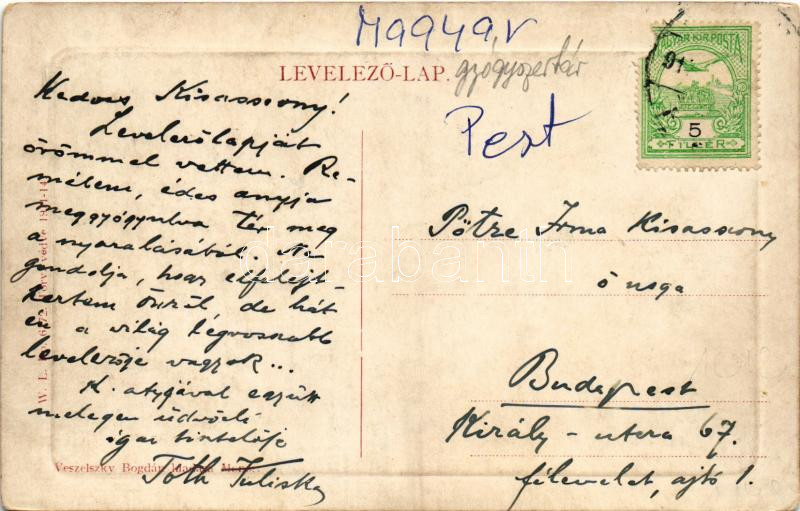 Magyar
gyógyszertár
Pest
LEVELEZŐ-LAP.
MAGYAR KIR. POSTA
5
FILLÉR
Kedves Kisasszony!
Levelezőlapját
örömmel vettem. Re-
mélem, édes anyja
meggyógyulva tér meg
a nyaralásából. Ne
gondolja, hogy elfelejt-
keztem Önről, de hát
én a világ legrosszabb
levelezője vagyok...
K. atyjával együtt
melegen üdvözli
igaz tisztelője
Tóth Juliska
Irma Kisasszony
őnaga
Budapest
Király-utca 67.
félemelet, ajtó 1.
Veszelszky Bogdán kiadása
W. L.
darabanth